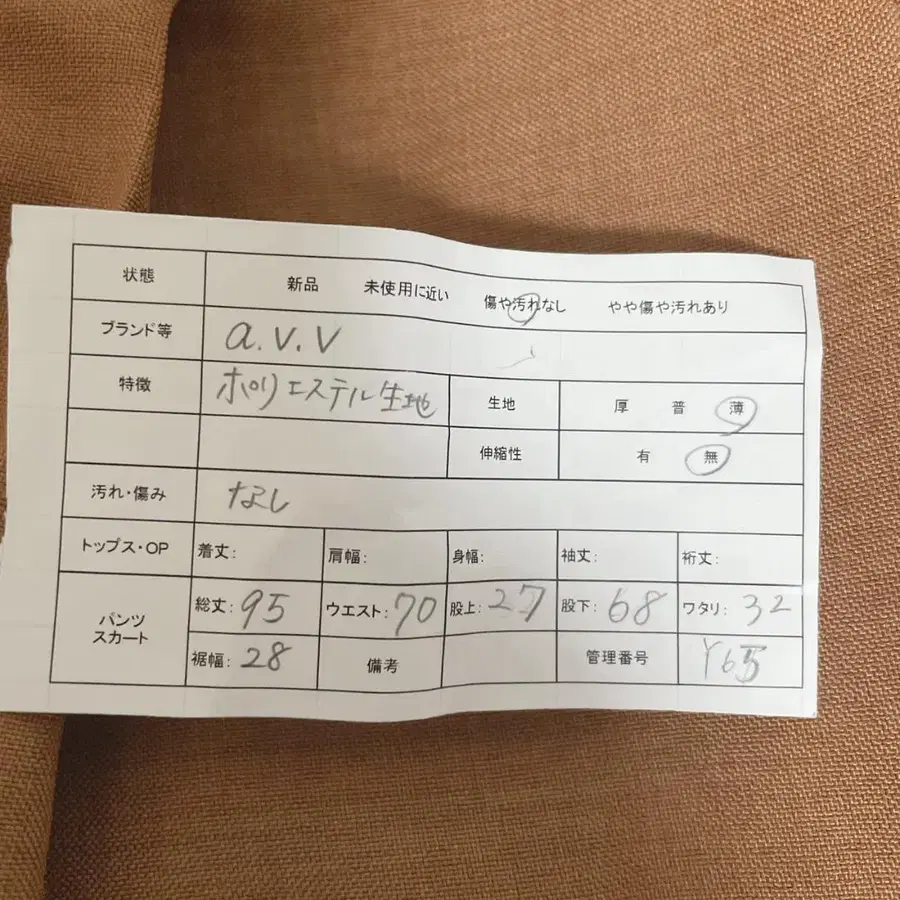 状態 新品 未使用に近い 傷や汚れなし やや傷や汚れあり
ブランド等 a.v.v
特徴 ポリエステル生地 生地 厚 普 薄
伸縮性 有 無
汚れ・傷み なし
トップス・OP 着丈: 肩幅: 身幅: 袖丈: 裄丈:
パンツ スカート 総丈: 95 ウエスト: 70 股上: 27 股下: 68 ワタリ: 32
裾幅: 28 備考 管理番号 Y65